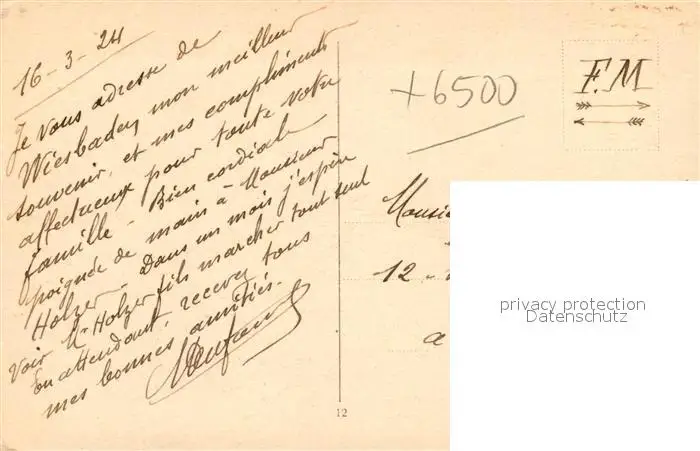 16-3-24
Je vous adresse de
Wiesbaden mon meilleur
souvenir, et mes compliments
affectueux pour toute votre
famille - Bien cordiale
poignée de main à Monsieur
Holzer - Dans un mois j'espère
voir Mr Holzer fils marcher tout seul
En attendant, recevez tous
mes bonnes amitiés.
+6500
F.M
12 -
a
privacy protection
Datenschutz
12